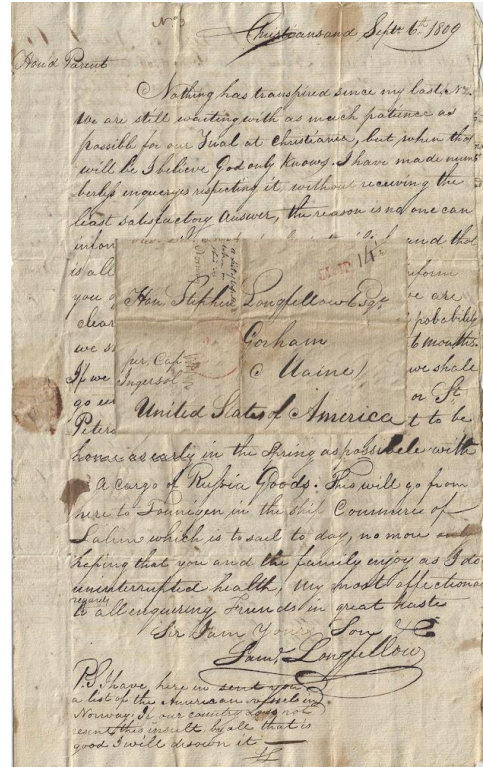 No 3
Christiansand Sept. 6th 1809
Hond Parent
Nothing has transpired since my last, No 2.
We are still waiting with as much patience as
possible for our Trial at Christiania, but when that
will be I believe God only knows. I have made num
berless enquerys respecting it, without receiving the
least satisfactory answer, the reason is no one can
infor
und that
is all
inform
you
we are
clear
probability
we s
6 months.
If we
we shall
go
or St.
Peters
t to be
home as early in the Spring as possibele with
A cargo of Russia Goods. This will go from
here to Tonnigen in the ship Commerce of
Salem which is to sail to day, no more
hoping that you and the family enjoy as I do
uninterrupted health, My most affectiona
regards
to all enquiring Friends in great haste
Sir I am Your Son &c
Saml. Longfellow
P.S. I have here in sent you
a list of the American vessels in
Norway. If our country does not
resent this insult by all that is
good I will disown it
Hon Stephen Longfellow Esqr
Gorham
Maine
per. Cap.
Ingersol
United States of America
14